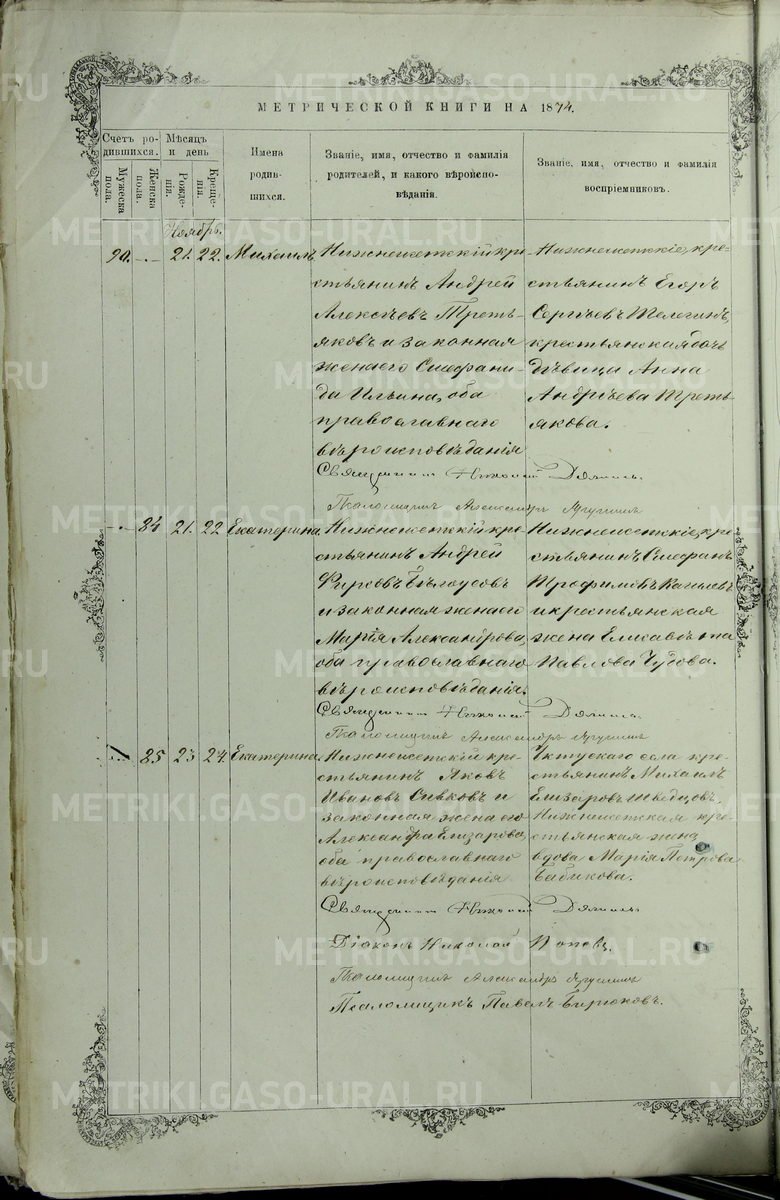 МЕТРИЧЕСКОЙ КНИГИ НА 1874.
Счетъ ро-
дившихся.
Мужеска пола.
Женска пола.
Мѣсяцъ
и день
Рожде-
нія.
Креще-
нія.
Имена
родив-
шихся.
Званіе, имя, отчество и фамилія
родителей, и какого вѣроиспо-
вѣданія.
Званіе, имя, отчество и фамилія
воспріемниковъ.
Ноябрь.
90. 21. 22. Михаилъ
Нижнеисетскій кре-
стьянинъ Андрей
Алексѣевъ Треть-
яковъ и законная
жена его Стефани-
да Ильина, оба
православнаго
вѣроисповѣданія
Нижнеисетскіе, кре-
стьянинъ Егоръ
Сергѣевъ Телегинъ,
крестьянская дочь
дѣвица Анна
Андреева Треть-
якова.
Священникъ Николай
Псаломщикъ Александръ
84 21. 22 Екатерина.
Нижнеисетскій кре-
стьянинъ Андрей
Фирсовъ Бѣлоусовъ
и законная жена его
Марія Александрова,
оба православнаго
вѣроисповѣданія.
Нижнеисетскіе, кре-
стьянинъ Стефанъ
Трофимовъ
и крестьянская
жена Елисавета
Павлова Чугова.
Священникъ Николай
Псаломщикъ Александръ
85. 23 24. Екатерина.
Нижнеисетскій кре-
стьянинъ Яковъ
Ивановъ Сивковъ и
законная жена его
Александра Елизарова,
оба православнаго
вѣроисповѣданія
Уктускаго села кре-
стьянинъ Михаилъ
Елизаровъ Шведцовъ,
Нижнеисетская кре-
стьянская жена
вдова Марія Петрова
Бабикова.
Священникъ Николай
Діаконъ Николай Поповъ,
Псаломщикъ Александръ
Псаломщикъ Павелъ Бирюковъ.
METRIKI.GASO-URAL.RU